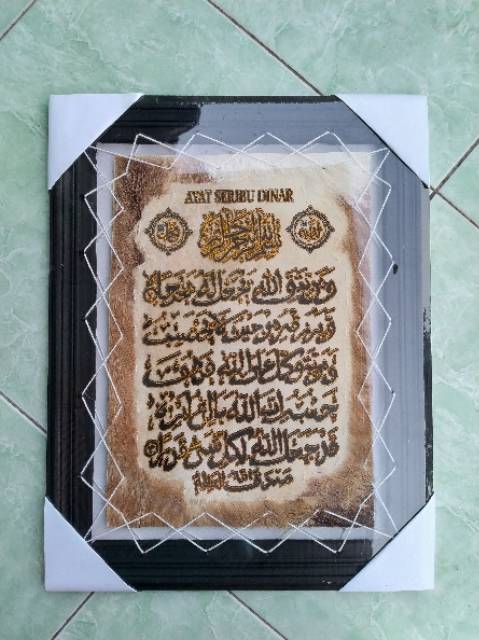 AYAT SERIBU DINAR
بسم الله الرحمن الرحيم
الله محمد
ومن يتق الله يجعل له مخرجا
ويرزقه من حيث لا يحتسب
ومن يتوكل على الله فهو
حسبه إن الله بالغ أمره
قد جعل الله لكل شيء قدرا